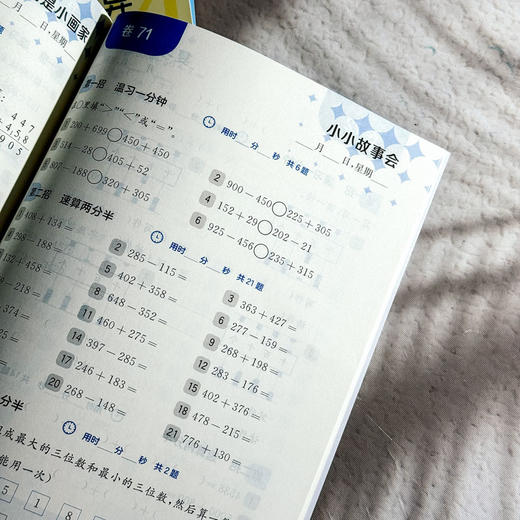 是小画家
月 日,星期
题
4 4 7
4,5,8
9 0 5
卷 71
小小故事会
月 日,星期
第一招 温习一分钟
里填“>”“<”或“=”。
用时 分 秒 共6题
200+699○450+450
2 900-450○225+305
514-28○405+52
4 152+29○202-21
807-188○320+305
6 925-456○235+315
第二招 速算两分半
用时 分 秒 共21题
408+134=
2 285-115=
3 363+427=
298-188
5 402+358=
6 277-159=
132+458=
8 648-352=
9 268+198=
-218=
11 460+275=
12 283-176=
+374=
14 397-285=
15 402+376=
25=
17 246+183=
18 478-215=
20 268-148=
21 776+130=
分半
用时 分 秒 共2题
成最大的三位数和最小的三位数,然后算一
能用一次)
5 1 8